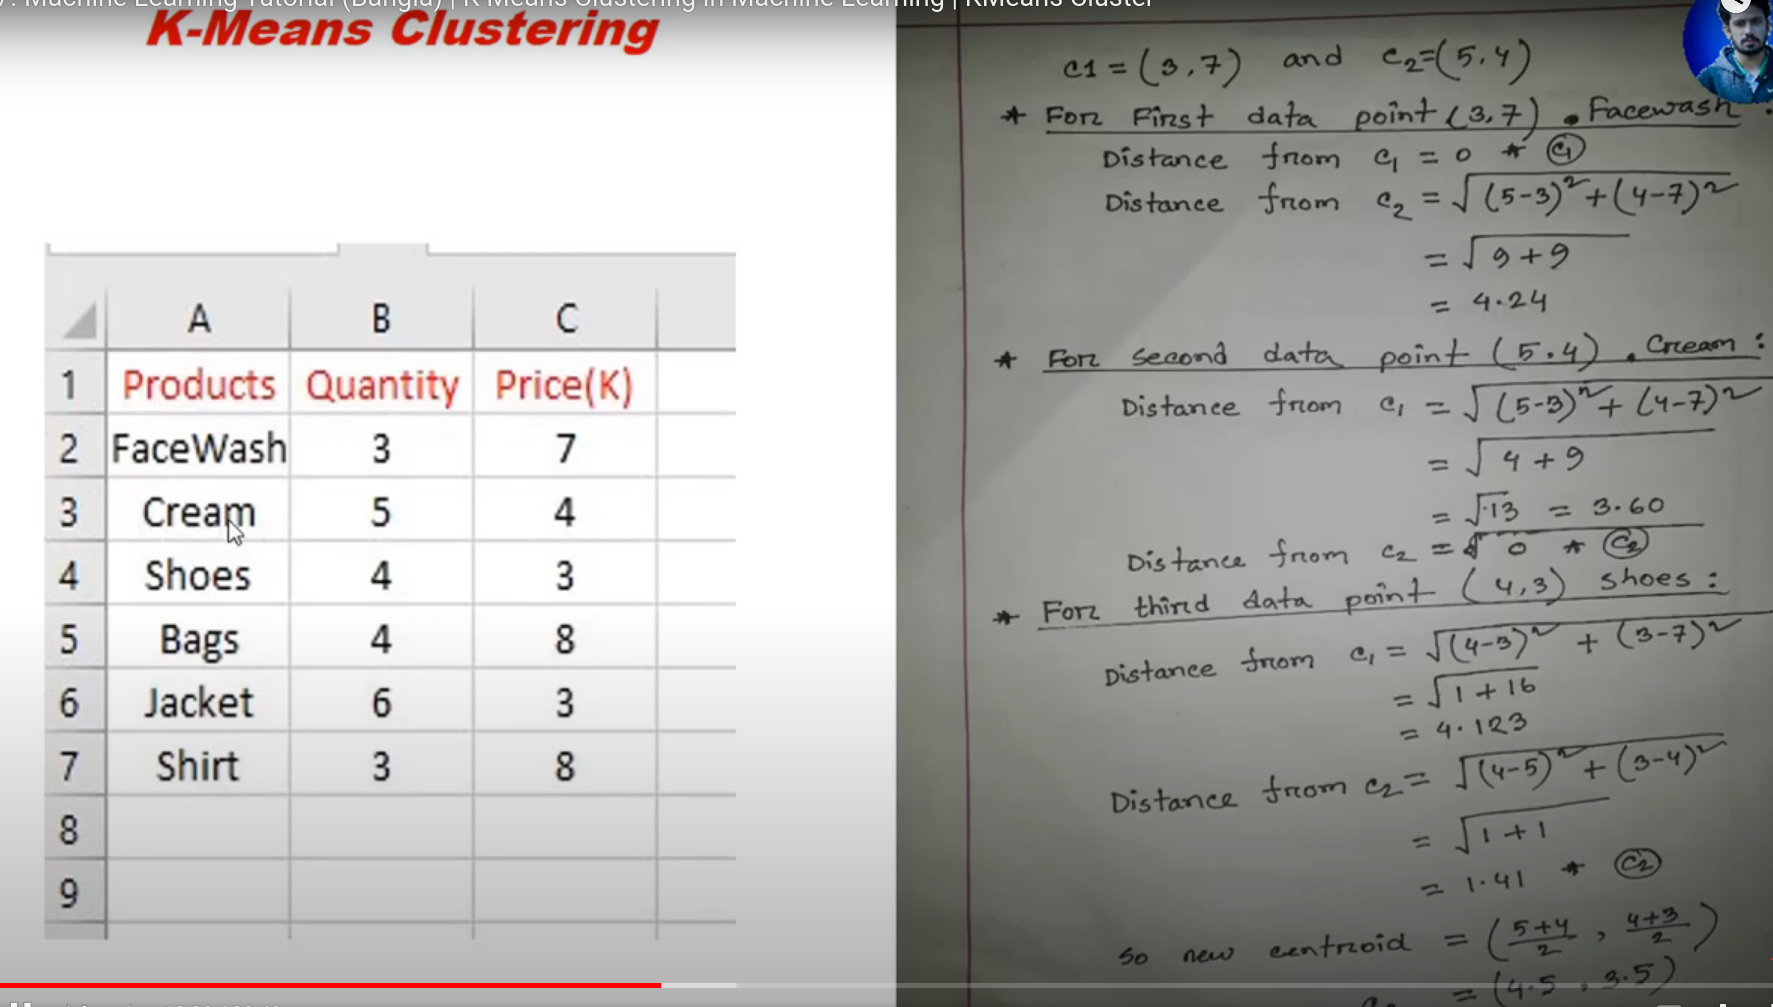 Machine Learning Tutorial (Bangla) | K Means Clustering in Machine Learning | KMeans Cluster
K-Means Clustering
A B C
1 Products Quantity Price(K)
2 FaceWash 3 7
3 Cream 5 4
4 Shoes 4 3
5 Bags 4 8
6 Jacket 6 3
7 Shirt 3 8
8
9
c1 = (3,7) and c2=(5,4)
* For First data point (3,7) . Facewash :
Distance from c1 = 0 * (c1)
Distance from c2 = √(5-3)²+(4-7)²
= √9+9
= 4.24
* For second data point (5,4) . Cream :
Distance from c1 = √(5-3)²+(4-7)²
= √4+9
= √13 = 3.60
Distance from c2 = 0 * (c2)
* For third data point (4,3) shoes :
Distance from c1 = √(4-3)² + (3-7)²
= √1+16
= 4.123
Distance from c2 = √(4-5)² + (3-4)²
= √1+1
= 1.41 * (c2)
So new centroid = (5+4/2 , 4+3/2)
= (4.5 , 3.5)